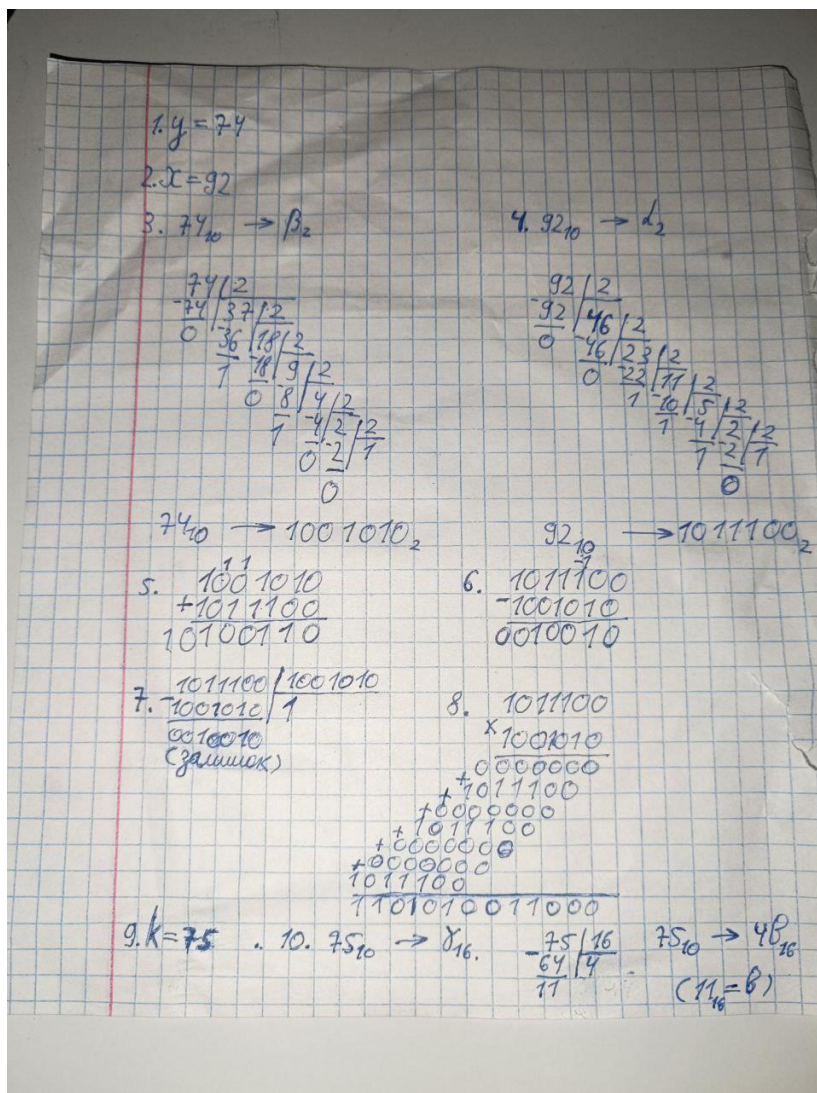 1. y = 74
2. x = 92
3. 74₁₀ → β₂
4. 92₁₀ → α₂
74 | 2
-74 | 37 | 2
0 -36 | 18 | 2
1 -18 | 9 | 2
0 -8 | 4 | 2
1 -4 | 2 | 2
0 -2 | 1
0
92 | 2
-92 | 46 | 2
0 -46 | 23 | 2
0 -22 | 11 | 2
1 -10 | 5 | 2
1 -4 | 2 | 2
1 -2 | 1
0
74₁₀ → 1001010₂
92₁₀ → 1011100₂
5.
1 1
1001010
+1011100
10100110
6.
-1
1011100
-1001010
0010010
7.
-1011100 | 1001010
1001010 | 1
0010010
(залишок)
8.
1011100
x 1001010
0000000
+1011100
+0000000
+1011100
+0000000
+0000000
1011100
1101010011000
9. k = 75 . 10. 75₁₀ → γ₁₆.
-75 | 16
64 | 4
11
75₁₀ → 4B₁₆
(11₁₆ = B)